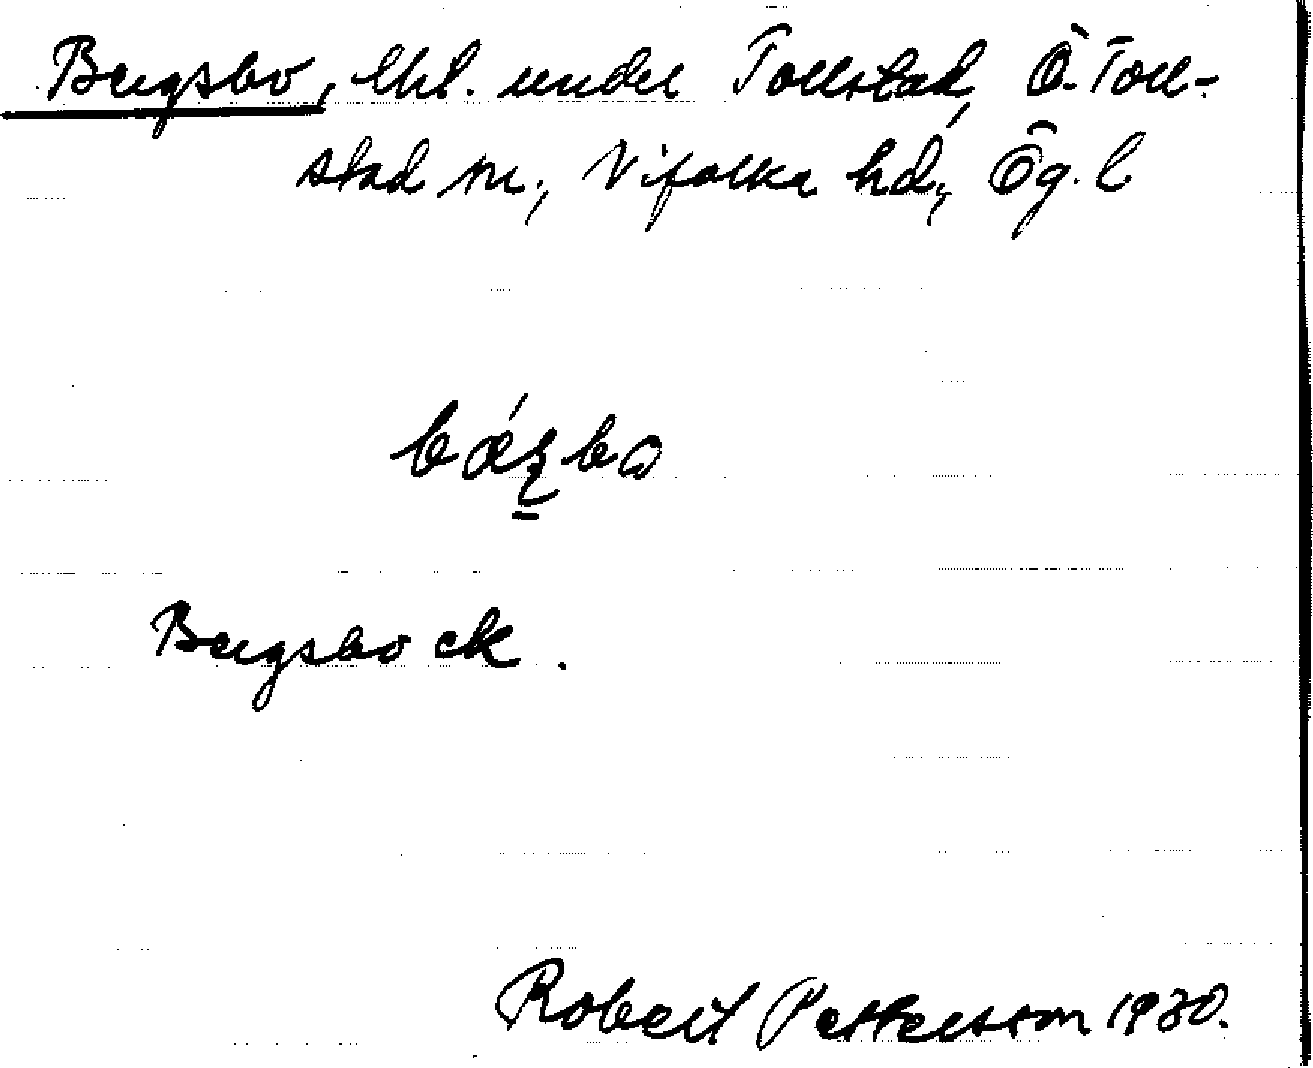 Bergsbo, lht. under Tollstad, Ö. Toll-
stad sn., Vifolka hd, Ög. l
Bergsbo ek.
Robert Pettersson 1930.